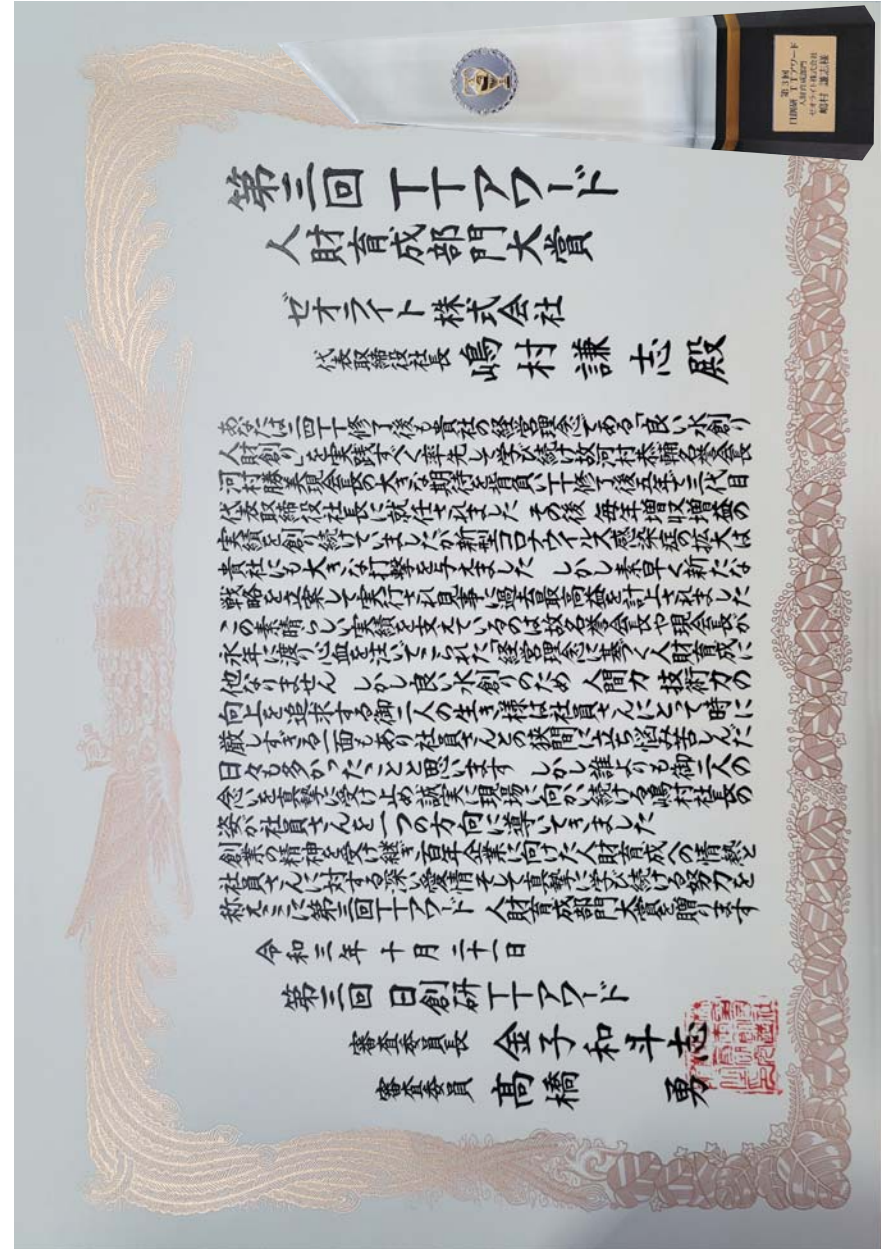 第3回
日創研 TTアワード
人財育成部門
ゼオライト株式会社
嶋村 謙志様
第三回 TTアワード
人財育成部門大賞
ゼオライト株式会社
代表取締役社長 嶋村謙志殿
あなたは二四TT修了後も貴社の経営理念である「良い水創り
人財創り」を実践すべく率先して学び続け故河村恭輔名誉会長
河村勝美現会長の大きな期待を背負いTT修了後五年で三代目
代表取締役社長に就任されました その後 毎年増収増益の
実績を創り続けていましたが新型コロナウイルス感染症の拡大は
貴社にも大きな打撃を与えました しかし素早く新たな
戦略を立案して実行され見事に過去最高益を計上されました
この素晴らしい実績を支えているのは故名誉会長や現会長が
永年に渡り心血を注いでこられた「経営理念に基づく人財育成に
他なりません しかし良い水創りのため 人間力 技術力の
向上を追求する御二人の生き様は社員さんにとって時に
厳しすぎる一面もあり社員さんとの狭間に立ち悩み苦しんだ
日々も多かったことと思います しかし誰よりも御二人の
念いを真摯に受け止め誠実に現場に向かい続ける嶋村社長の
姿が社員さんを一つの方向に導いてきました
創業の精神を受け継ぎ百年企業に向けた人財育成への情熱と
社員さんに対する深い愛情そして真摯に学び続ける努力を
称えここに第三回TTアワード 人財育成部門大賞を贈ります
令和三年 十月 二十一日
第三回 日創研TTアワード
審査委員長 金子和斗志
審査委員 髙橋 勇